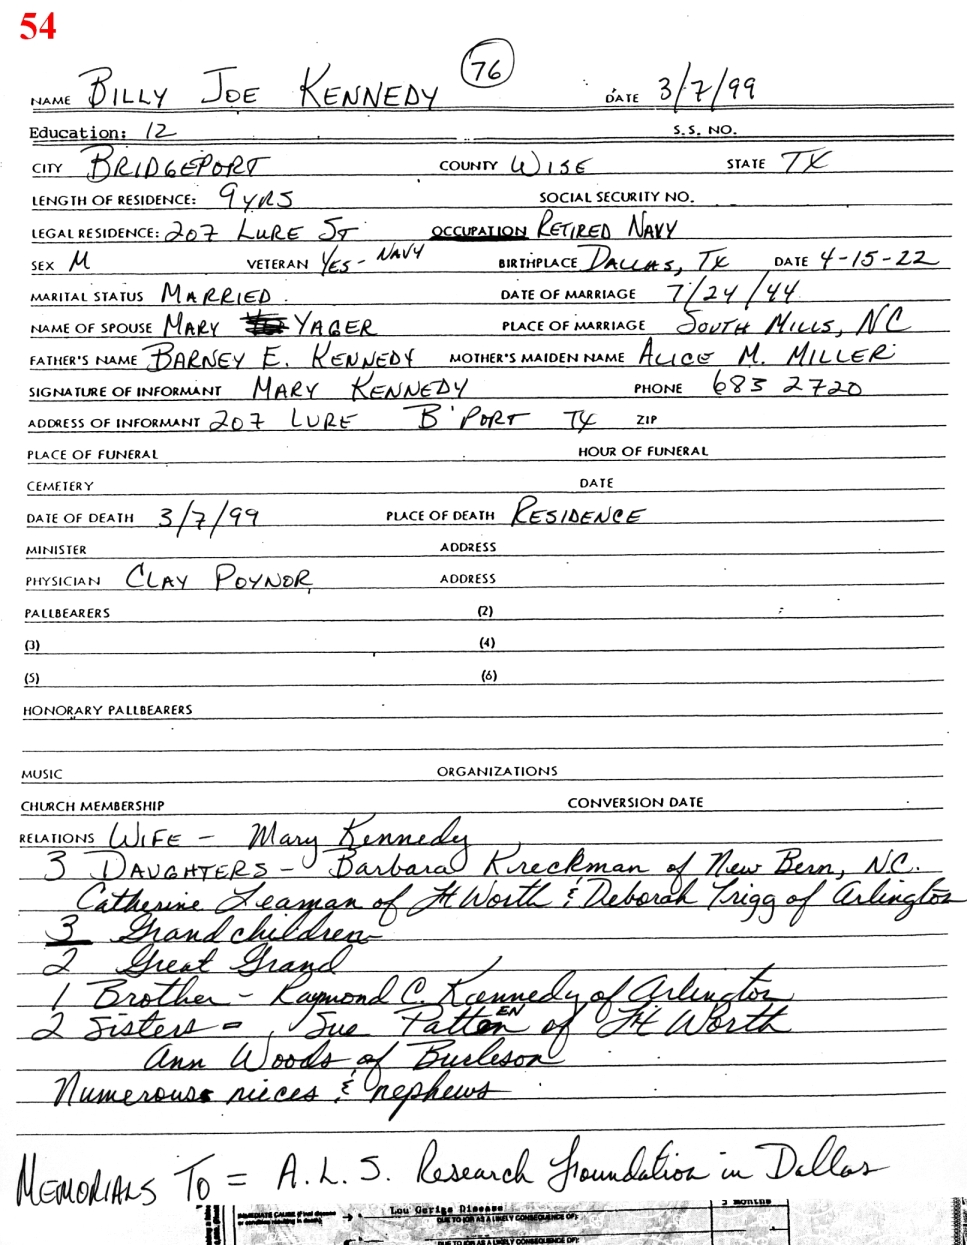 54
76
NAME BILLY JOE KENNEDY DATE 3/7/99
Education: 12 S.S. NO.
CITY BRIDGEPORT COUNTY WISE STATE TX
LENGTH OF RESIDENCE: 9 YRS SOCIAL SECURITY NO.
LEGAL RESIDENCE: 207 LURE ST OCCUPATION RETIRED NAVY
SEX M VETERAN YES - NAVY BIRTHPLACE DALLAS, TX DATE 4-15-22
MARITAL STATUS MARRIED DATE OF MARRIAGE 7/24/44
NAME OF SPOUSE MARY YAGER PLACE OF MARRIAGE SOUTH MILLS, NC
FATHER'S NAME BARNEY E. KENNEDY MOTHER'S MAIDEN NAME ALICE M. MILLER
SIGNATURE OF INFORMANT MARY KENNEDY PHONE 683 2720
ADDRESS OF INFORMANT 207 LURE B'PORT TX ZIP
PLACE OF FUNERAL HOUR OF FUNERAL
CEMETERY DATE
DATE OF DEATH 3/7/99 PLACE OF DEATH RESIDENCE
MINISTER ADDRESS
PHYSICIAN CLAY POYNOR ADDRESS
PALLBEARERS (2)
(3) (4)
(5) (6)
HONORARY PALLBEARERS
MUSIC ORGANIZATIONS
CHURCH MEMBERSHIP CONVERSION DATE
RELATIONS WIFE - Mary Kennedy
3 DAUGHTERS - Barbara Kreckman of New Bern, NC.
Catherine Leaman of Ft Worth & Deborah Trigg of Arlington
3 Grandchildren
2 Great Grand
1 Brother - Raymond C. Kennedy of Arlington
2 Sisters - Sue Patten of Ft Worth
Ann Woods of Burleson
Numerous nieces & nephews
MEMORIALS TO = A.L.S. Research Foundation in Dallas
IMMEDIATE CAUSE (Final disease or condition resulting in death) Lou Gerigs Disease 3 months
DUE TO (OR AS A LIKELY CONSEQUENCE OF):
DUE TO (OR AS A LIKELY CONSEQUENCE OF):